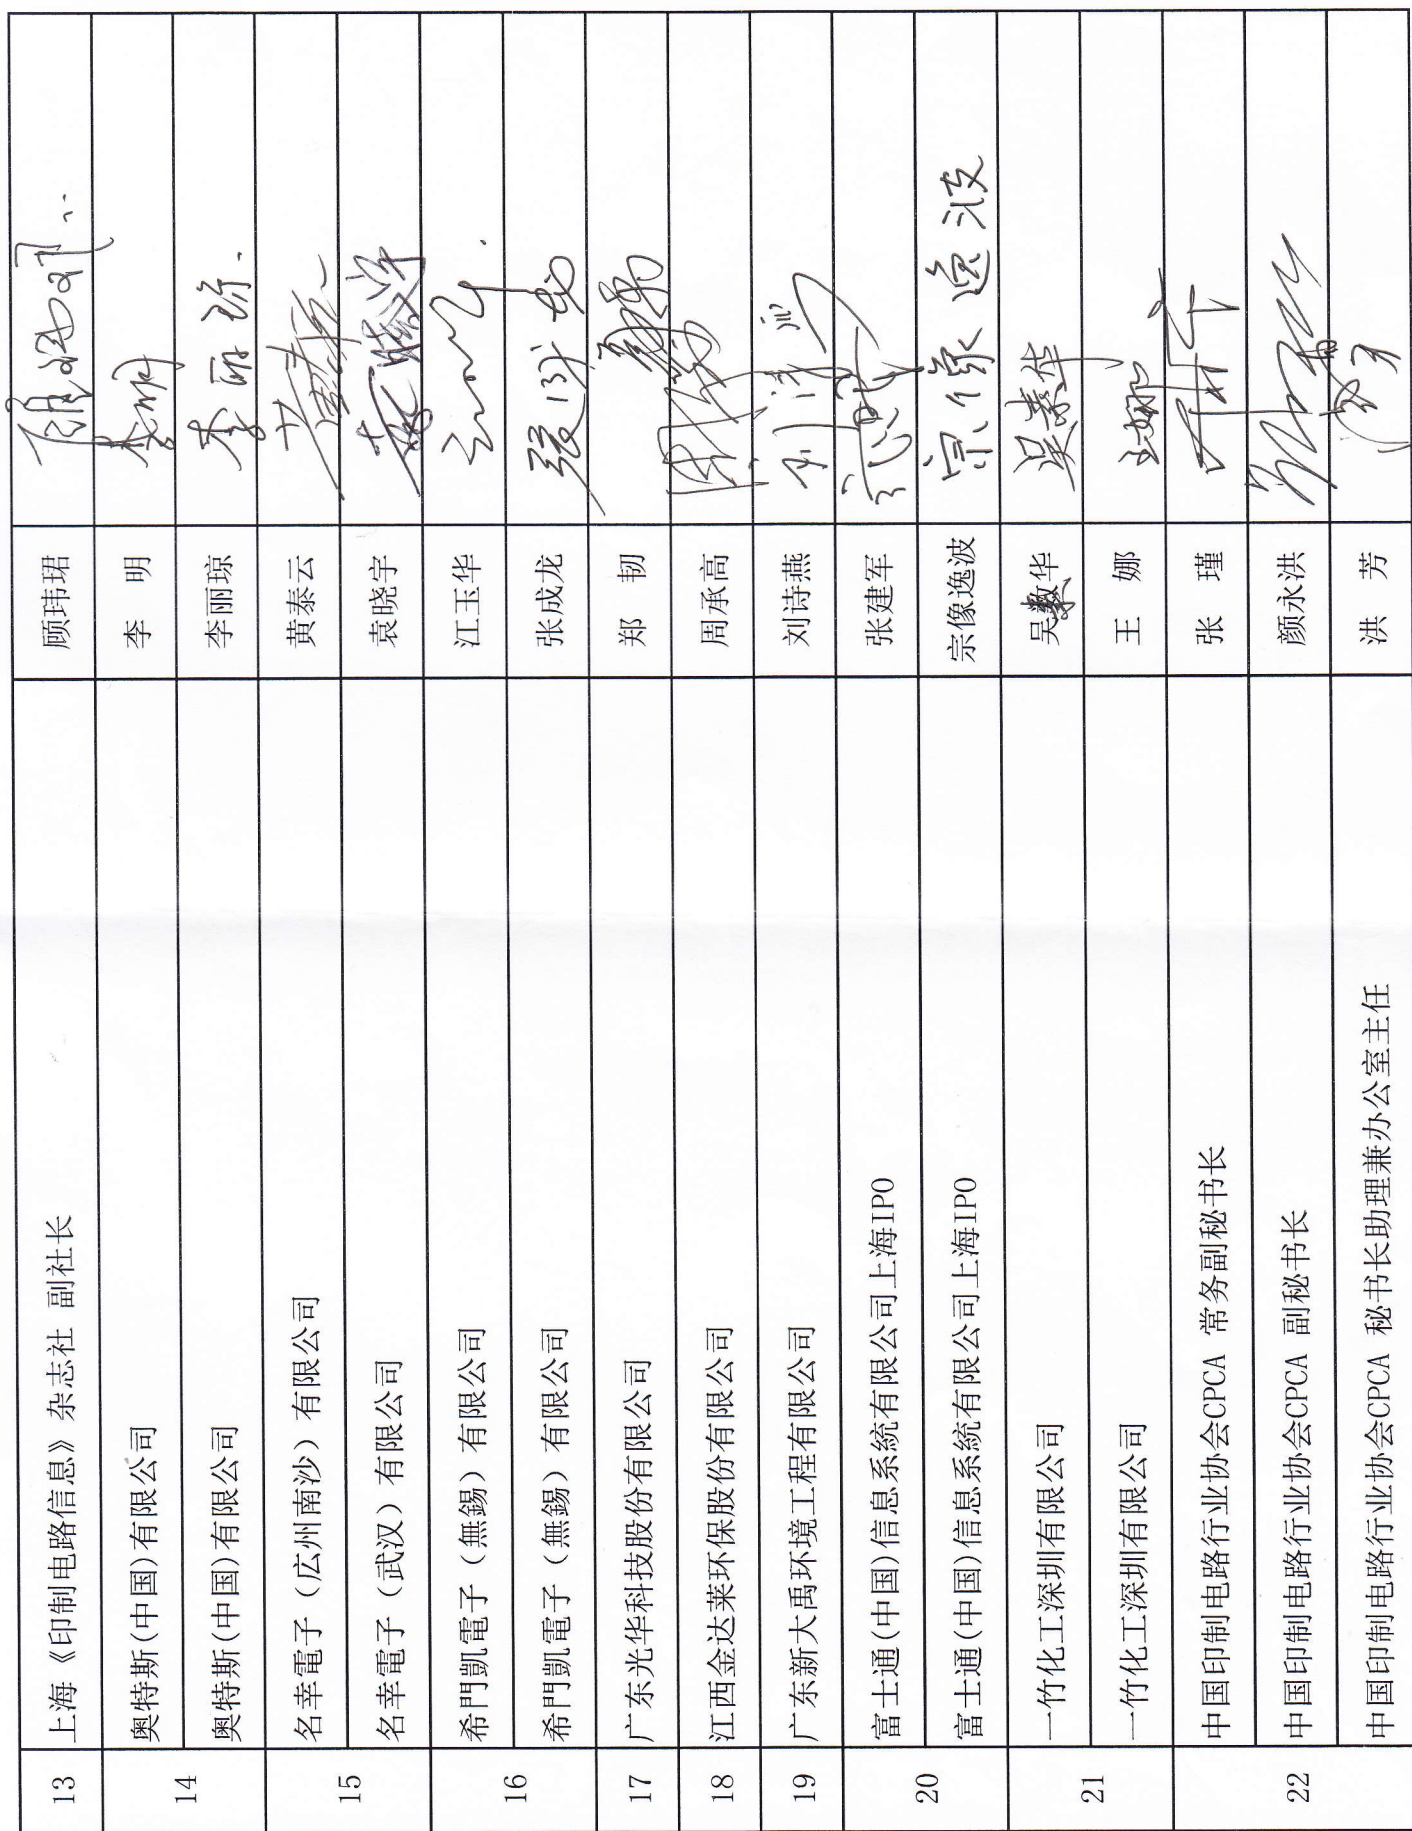 13 上海《印制电路信息》杂志社 副社长 顾玮珺
14 奥特斯(中国)有限公司 李 明 李明
奥特斯(中国)有限公司 李丽琼 李丽琼
15 名幸電子（広州南沙）有限公司 黄泰云
名幸電子（武汉）有限公司 袁晓宇
16 希門凱電子（無錫）有限公司 江玉华
希門凱電子（無錫）有限公司 张成龙 张成龙
17 广东光华科技股份有限公司 郑 韧
18 江西金达莱环保股份有限公司 周承高
19 广东新大禹环境工程有限公司 刘诗燕
20 富士通(中国)信息系統有限公司上海IPO 张建军
富士通(中国)信息系統有限公司上海IPO 宗像逸波 宗像逸波
21 一竹化工深圳有限公司 吴 华 吴素华
一竹化工深圳有限公司 王 娜 王娜
22 中国印制电路行业协会CPCA 常务副秘书长 张 瑾
中国印制电路行业协会CPCA 副秘书长 颜永洪
中国印制电路行业协会CPCA 秘书长助理兼办公室主任 洪 芳